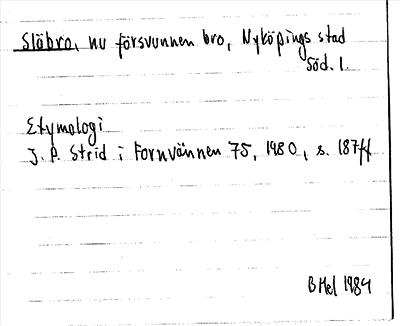 Slåbro, nu försvunnen bro, Nyköpings stad
Söd. l.
Etymologi
J. P. Strid i Fornvännen 75, 1980, s. 187ff
B Mel 1984